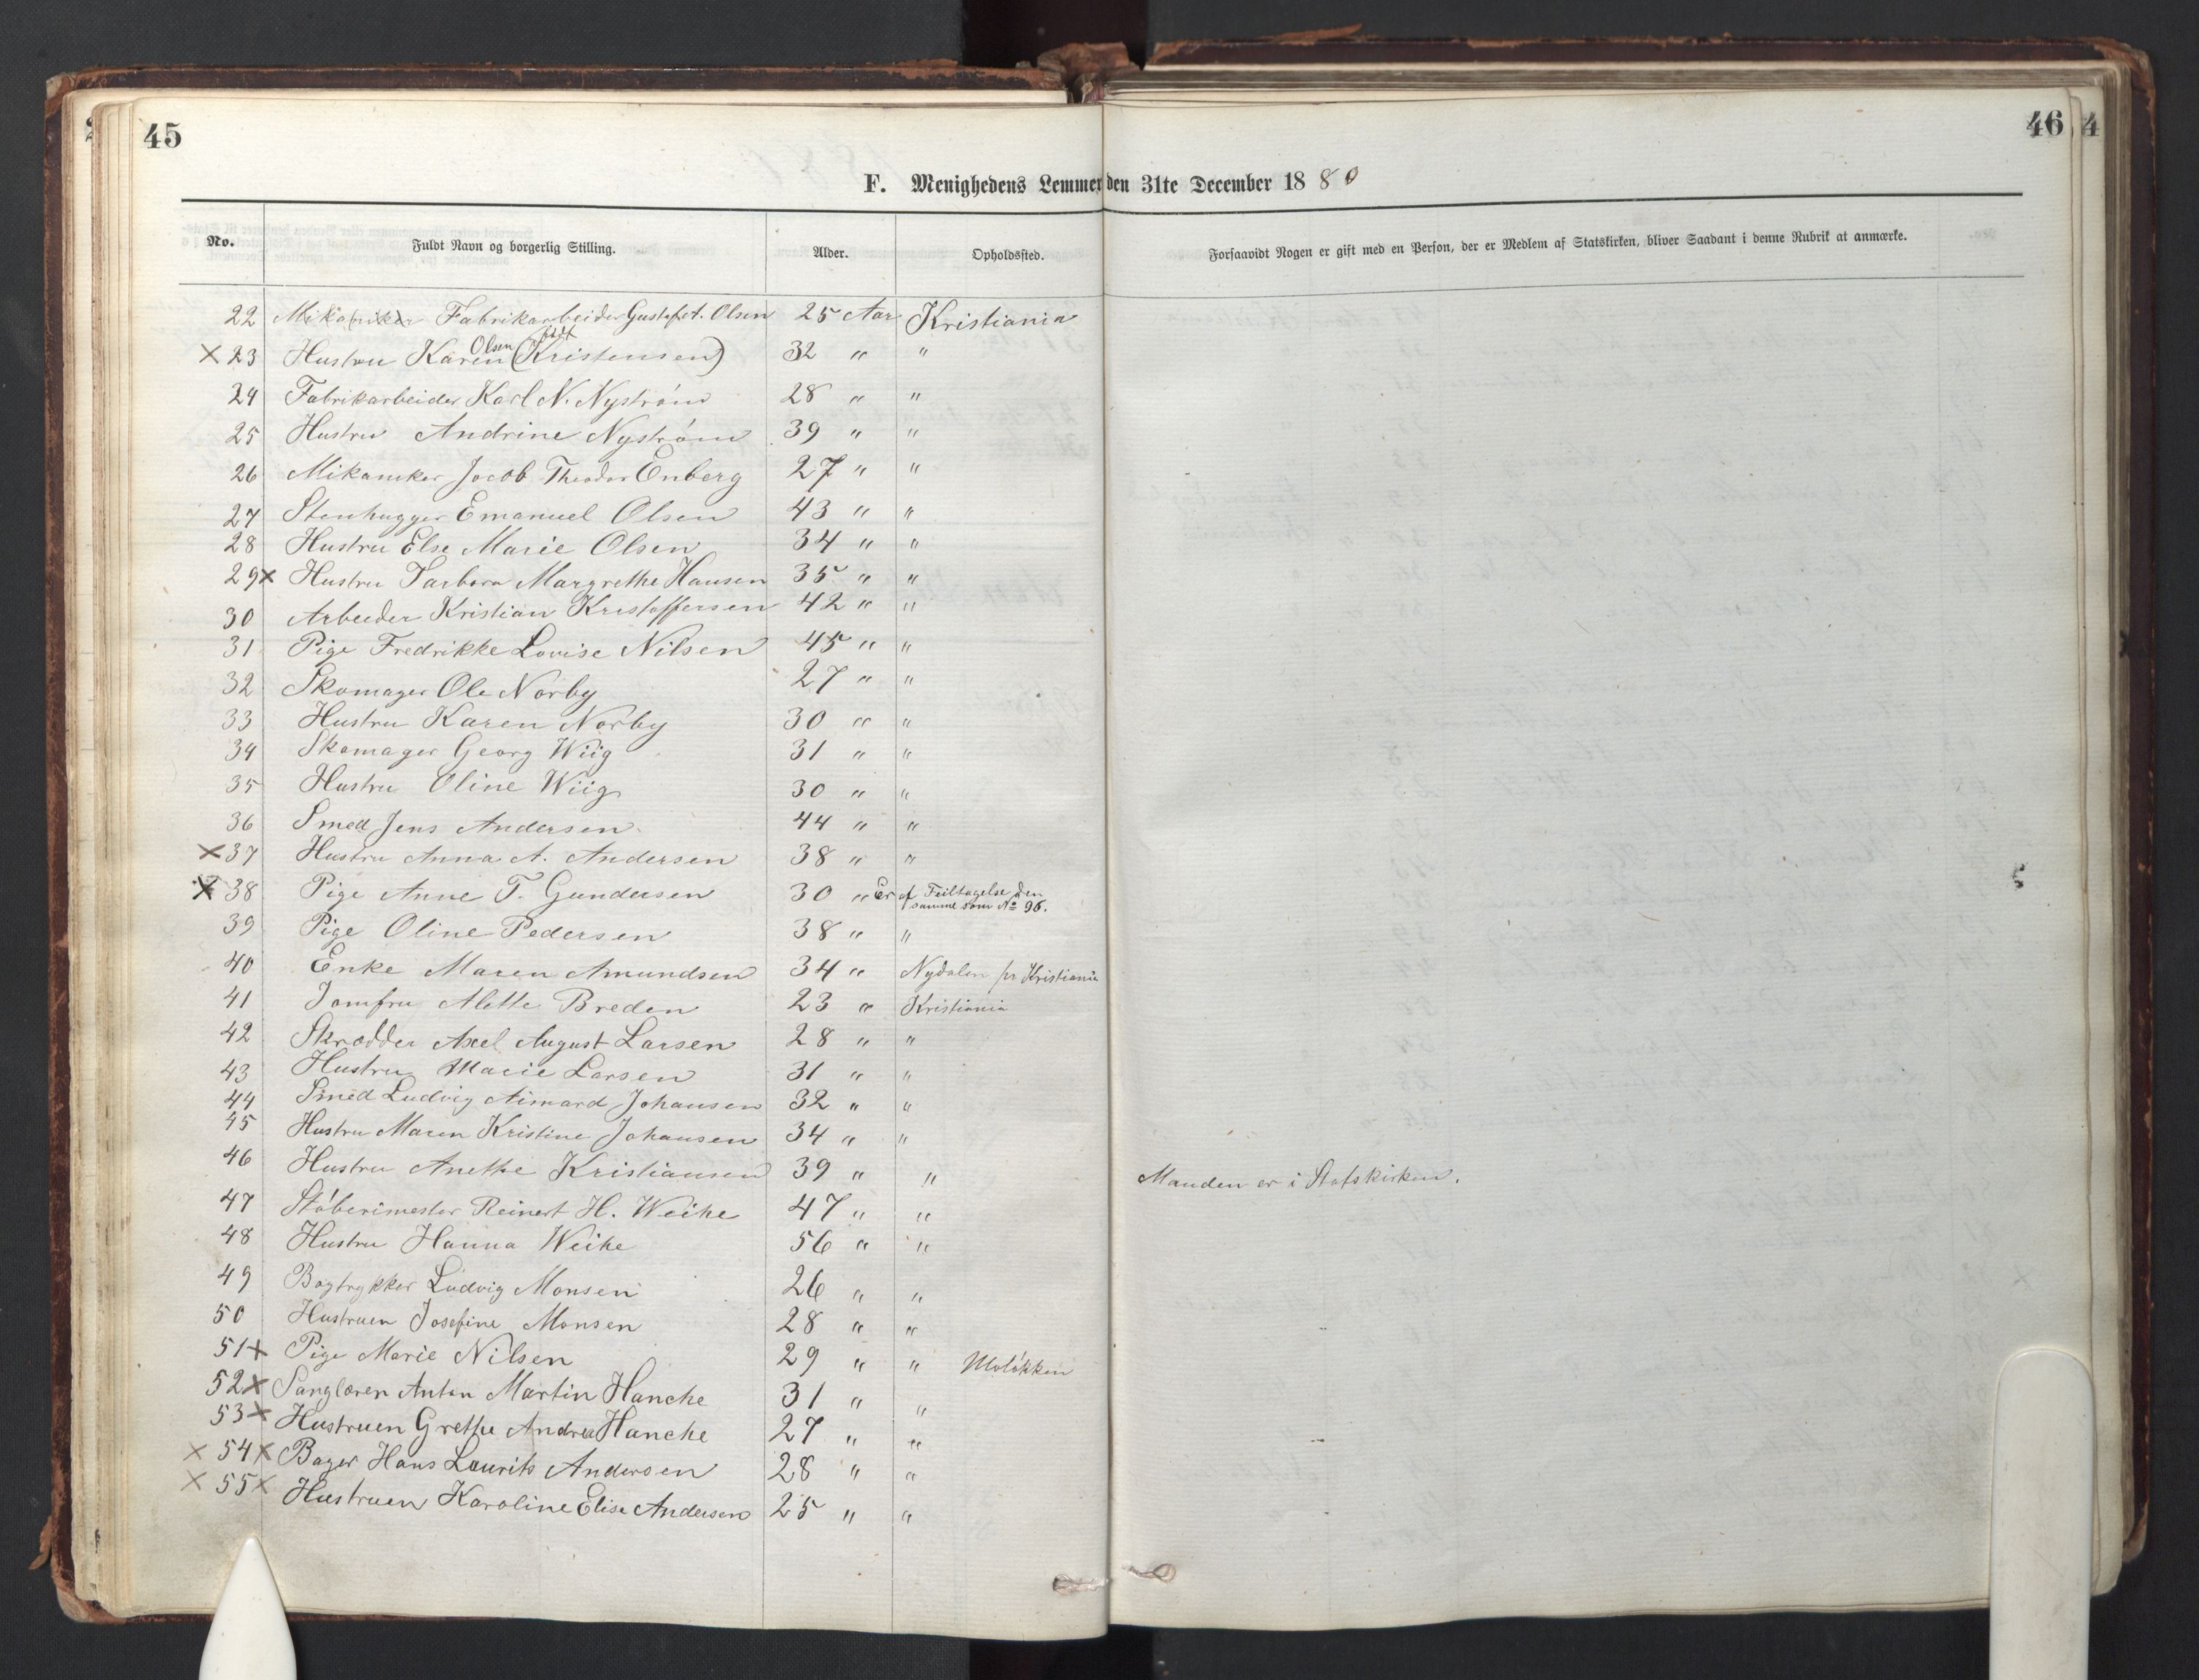 45
46
4
F. Menighedens Lemmer den 31te December 1880
No.
Fuldt Navn og borgerlig Stilling.
Alder.
Opholdssted.
Forsaavidt Nogen er gift med en Person, der er Medlem af Statskirken, bliver Saadant i denne Rubrik at anmærke.
22 Fabrikarbeider Gustaf A. Olsen 25 Aar Kristiania
Olsen født
× 23 Hustru Karen (Kristensen) 32 " "
24 Fabrikarbeider Karl N. Nystrøm 28 " "
25 Hustru Andrine Nystrøm 39 " "
26 Mikaniker Jacob Theodor Enberg 27 " "
27 Stenhugger Emanuel Olsen 43 " "
28 Hustru Else Marie Olsen 34 " "
29 × Hustru Barbora Margrethe Hansen 35 " "
30 Arbeider Kristian Kristoffersen 42 " "
31 Pige Fredrikke Lovise Nilsen 45 " "
32 Skomager Ole Norby 27 " "
33 Hustru Karen Norby 30 " "
34 Skomager Georg Wiig 31 " "
35 Hustru Oline Wiig 30 " "
36 Smed Jens Andersen 44 " "
× 37 Hustru Anna A. Andersen 38 " "
× 38 Pige Anne T. Gundersen 30 " Er af Feiltagelse den
samme som No 96.
39 Pige Oline Pedersen 38 " "
40 Enke Maren Amundsen 34 " Nydalen pr Kristiania
41 Jomfru Alette Breden 23 " Kristiania
42 Skrædder Axel August Larsen 28 " "
43 Hustru Marie Larsen 31 " "
44 Smed Ludvig Aimard Johansen 32 " "
45 Hustru Maren Kristine Johansen 34 " "
46 Hustru Anethe Kristiansen 39 " " Manden er i Statskirken.
47 Støberimester Reinert H. Weihe 47 " "
48 Hustru Hanna Weihe 56 " "
49 Bogtrykker Ludvig Monsen 26 " "
50 Hustruen Josefine Monsen 28 " "
51 × Pige Marie Nilsen 29 " " Moløkken
52 × Sanglæren Anton Martin Hanche 31 " "
53 × Hustruen Grethe Andrea Hanche 27 " "
× 54 × Bager Hans Laurits Andersen 28 " "
× 55 × Hustruen Karoline Elise Andersen 25 " "